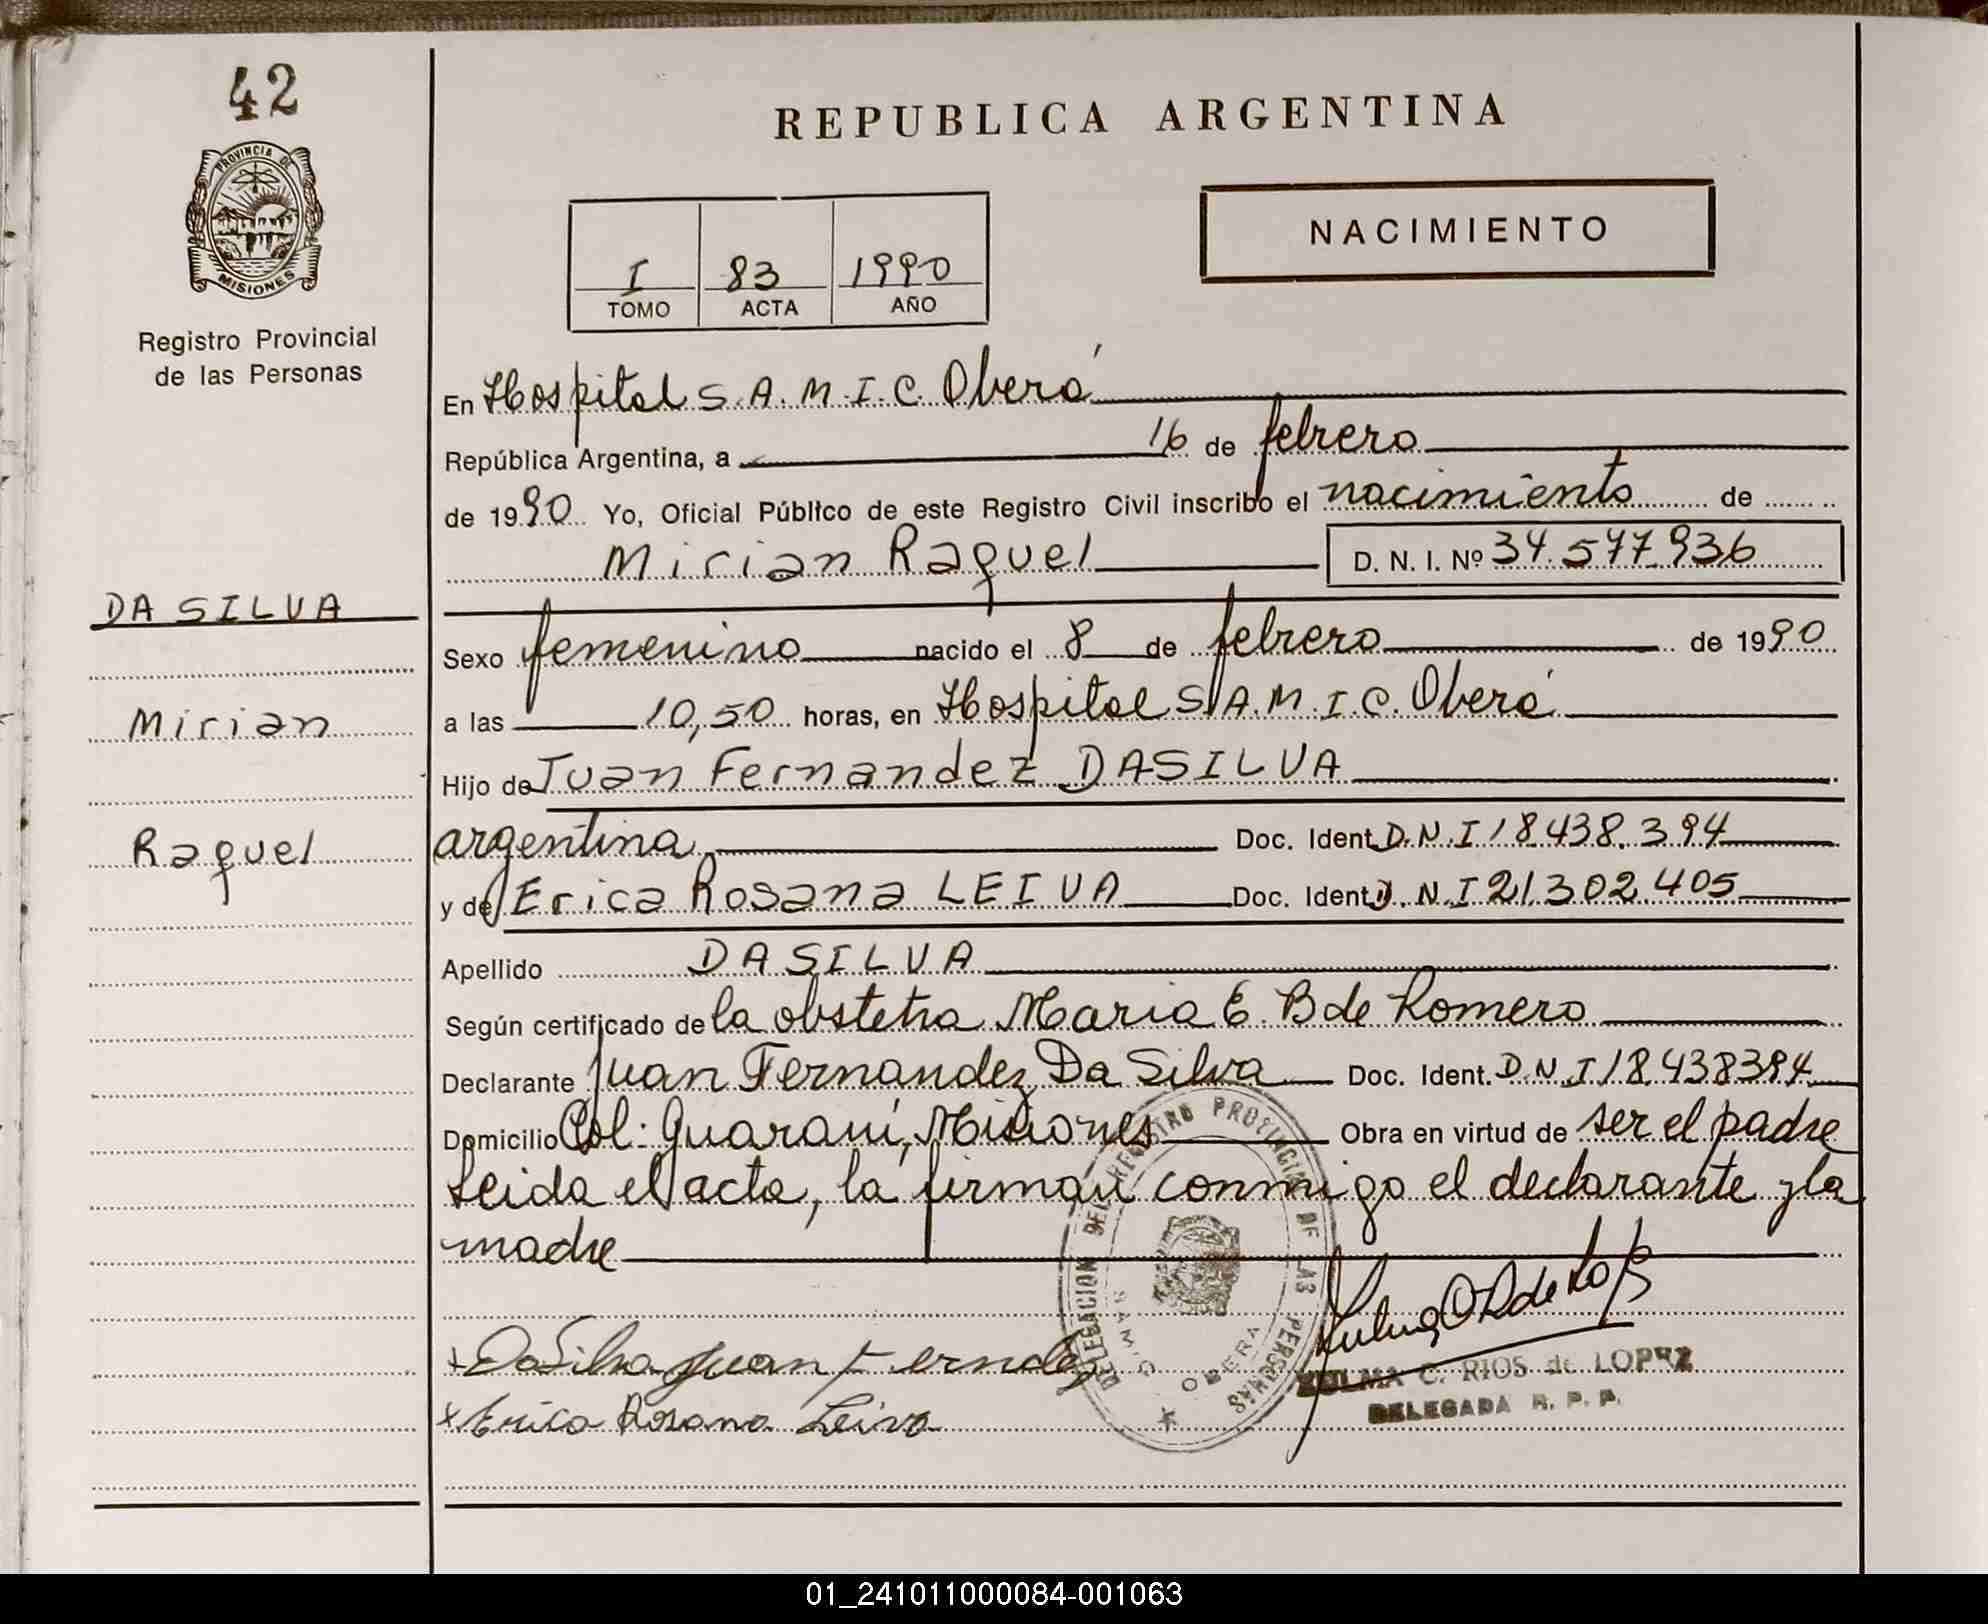 42
PROVINCIA DE
MISIONES
Registro Provincial
de las Personas
REPUBLICA ARGENTINA
NACIMIENTO
I 83 1990
TOMO ACTA AÑO
En Hospital S.A.M.I.C. Oberá
República Argentina, a 16 de febrero
de 1990 Yo, Oficial Público de este Registro Civil inscribo el nacimiento de
Mirian Raquel D. N. I. Nº 34.577.936
DA SILVA
Mirian
Raquel
Sexo femenino nacido el 8 de febrero de 1990
a las 10,50 horas, en Hospital S.A.M.I.C. Oberá
Hijo de Juan Fernandez DA SILVA
argentina Doc. Ident. D.N.I 18.438.394
y de Erica Rosana LEIVA Doc. Ident. D.N.I 21.302.405
Apellido DA SILVA
Según certificado de la obstetra Maria E. B de Romero
Declarante Juan Fernandez Da Silva Doc. Ident. D.N.I 18.438394
Domicilio Col. Guaraní, Misiones Obra en virtud de ser el padre
Leida el acta, la firman conmigo el declarante y la
madre
DELEGACION DEL REGISTRO PROVINCIAL DE LAS PERSONAS
OBERA
x DaSilva Juan Fernandez
x Erica Rosana Leiva
ZULMA C. RIOS de LOPEZ
DELEGADA R. P. P.
01_241011000084-001063